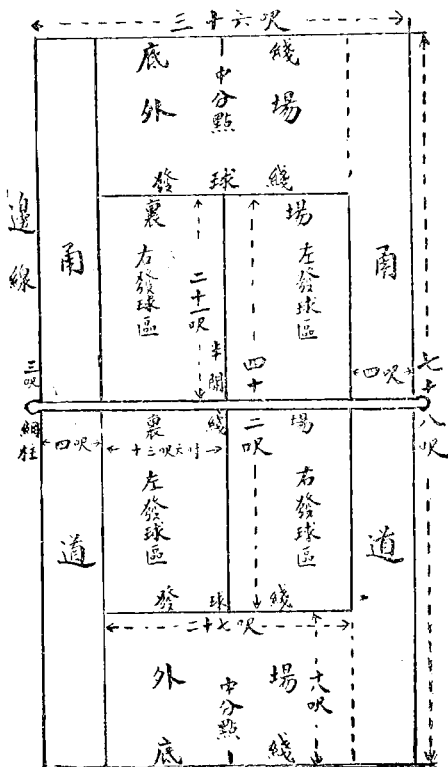 三十六呎
底 綫
中分點
外 場
發 球 綫
邊線
甬
甬
裏 場
右發球區
二十一呎
半閒綫
四十二呎
左發球區
三呎
四呎
七十八呎
網柱
四呎
十三呎六吋
裏 場
左發球區
右發球區
道
道
發 球 綫
二十七呎
外 場
中分點
十八呎
底 綫